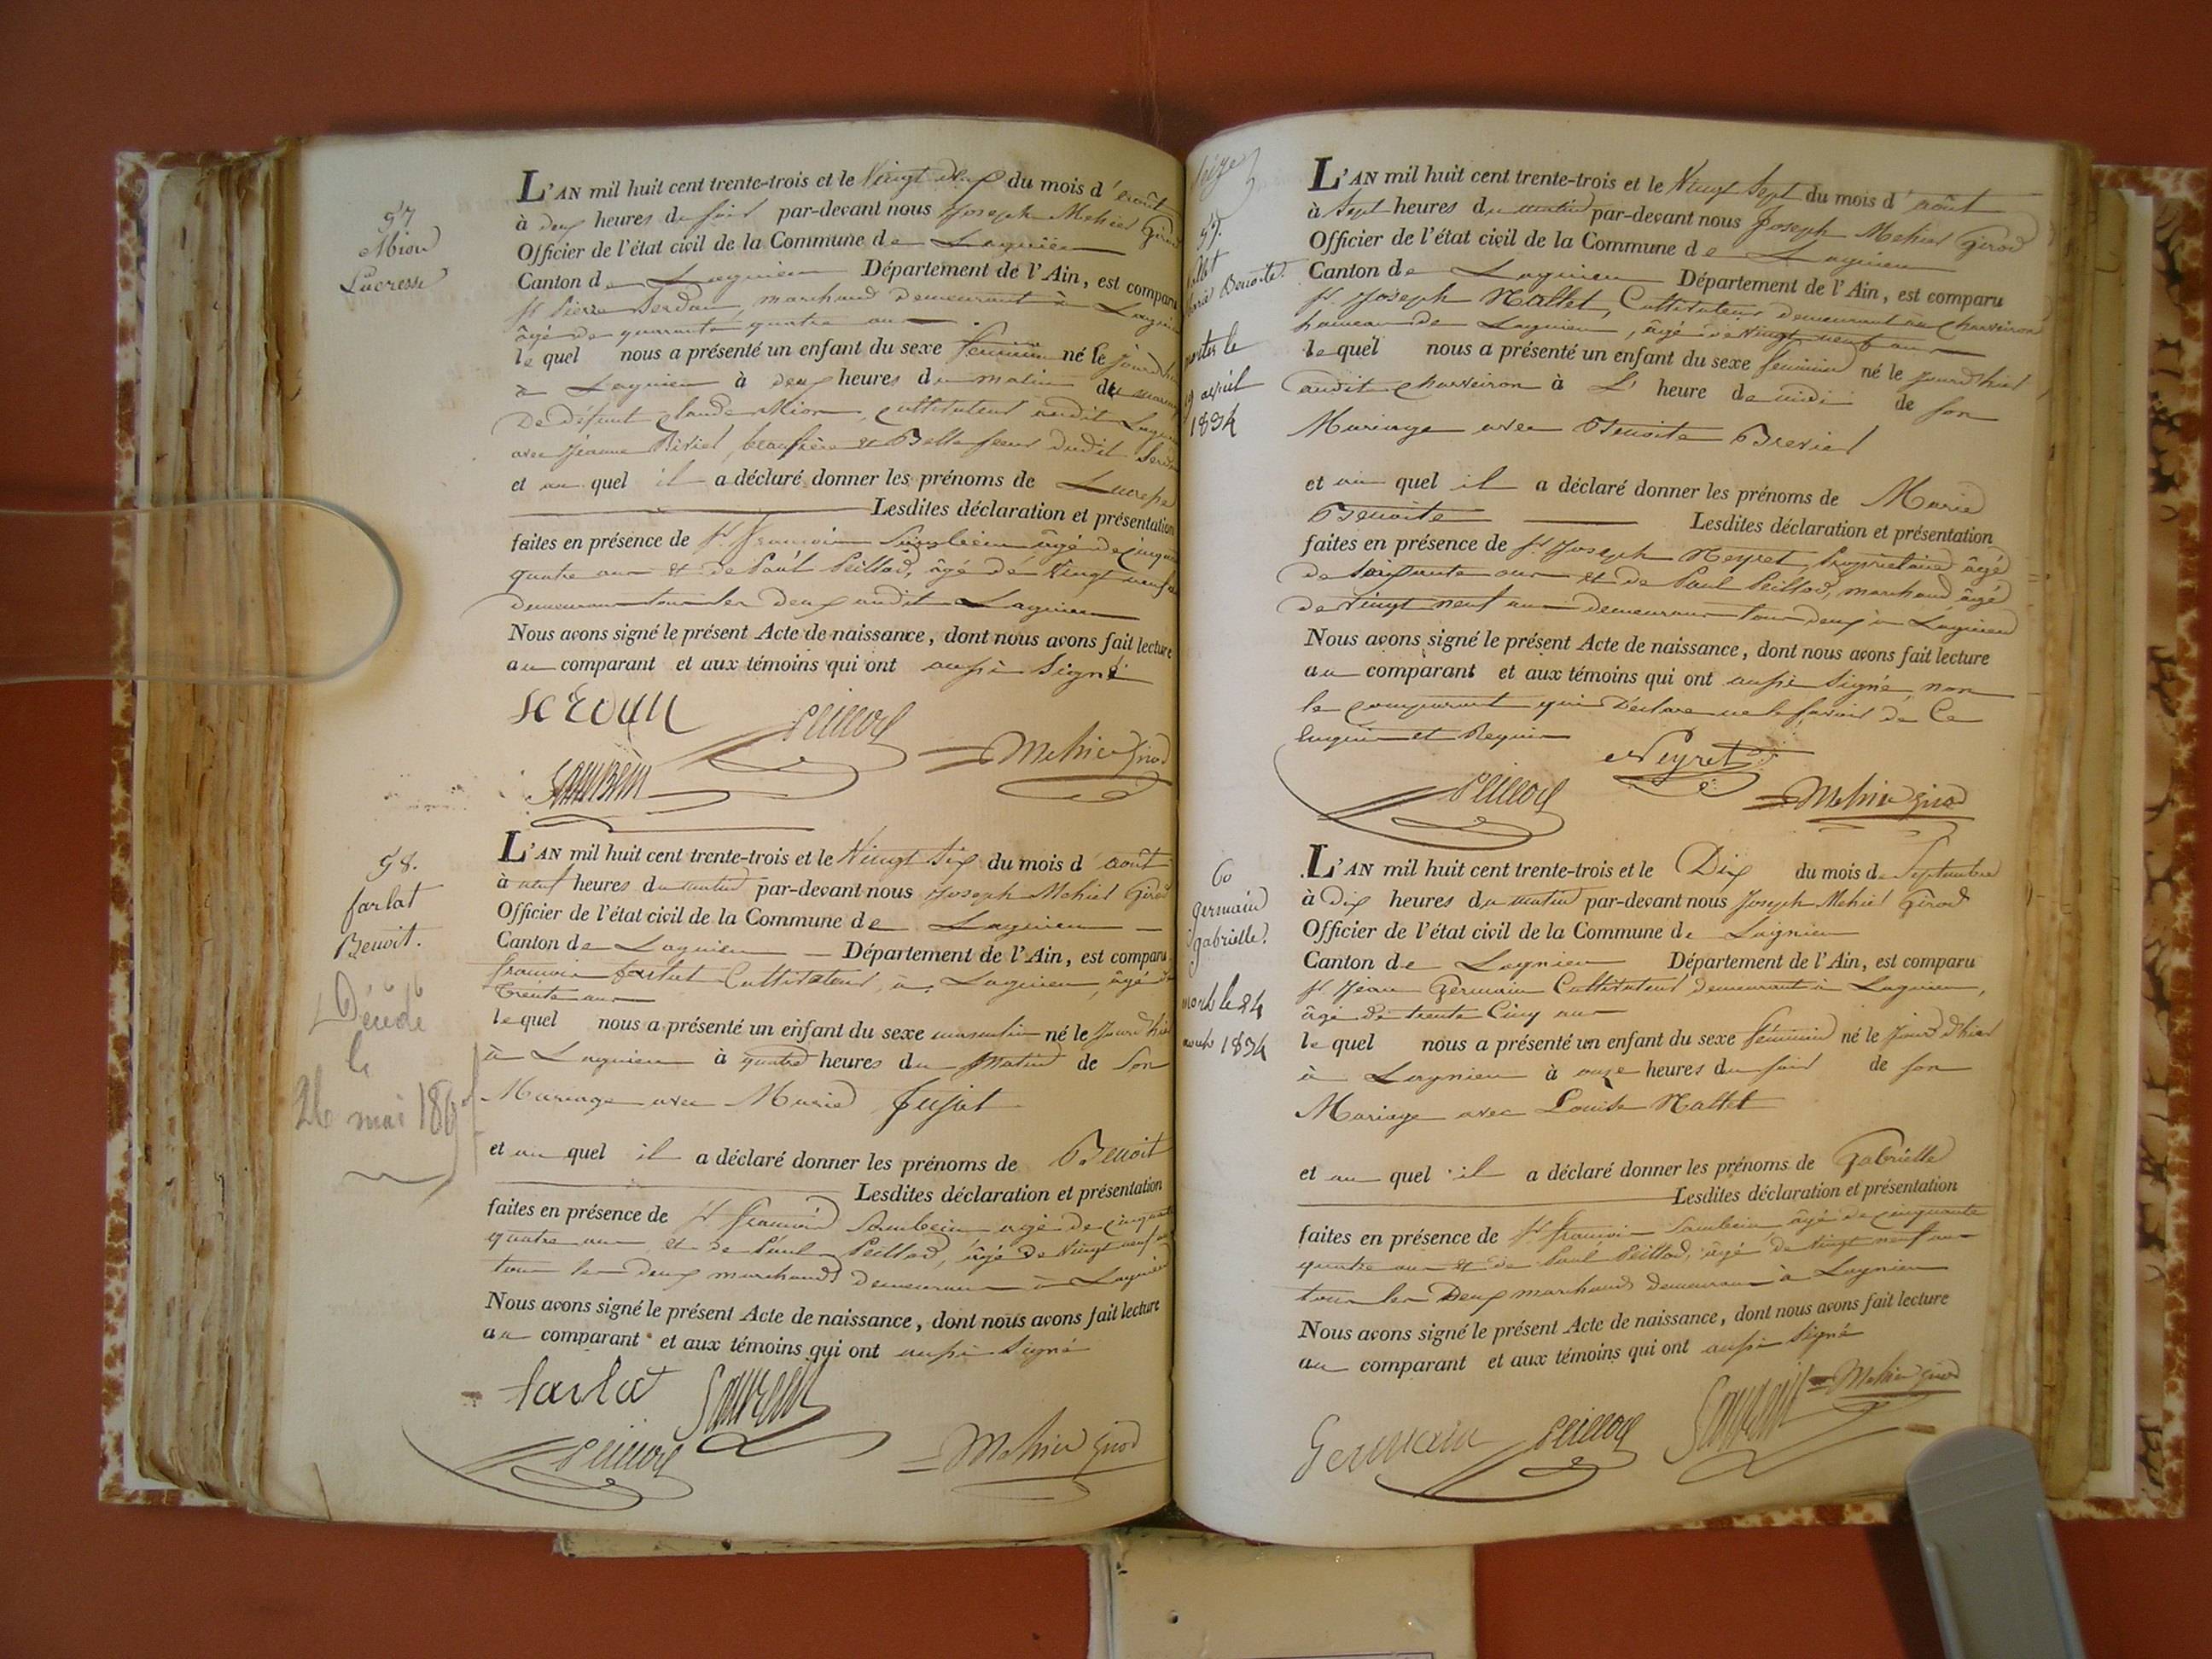 57
Mion
Lucresse
L'AN mil huit cent trente-trois et le Vingt deux du mois d'août
à deux heures du soir par-devant nous Joseph Mehier Girod
Officier de l'état civil de la Commune de Lagnieu
Canton de Lagnieu Département de l'Ain, est comparu
Sr. Pierre Serdan, marchand demeurant à Lagnieu
âgé de quarante quatre ans
lequel nous a présenté un enfant du sexe féminin né le jourd'hui
à Lagnieu à deux heures du matin du mariage
De défunt Claude Mion, cultivateur audit Lagnieu
avec Jeanne beaufrère et Belle soeur dudit
et au quel il a déclaré donner les prénoms de Lucresse
Lesdites déclaration et présentation
faites en présence de Sr. françois âgé de cinquante
quatre ans et de Paul Peillod, âgé de Vingt neuf ans
demeurans tous les deux audit Lagnieu
Nous avons signé le présent Acte de naissance, dont nous avons fait lecture
au comparant et aux témoins qui ont aussi Signé
Peillod
Mehier Girod
58.
farlat
Benoit.
Décédé
le
26 mai
L'AN mil huit cent trente-trois et le Vingt Six du mois d'août
à neuf heures du matin par-devant nous Joseph Mehier Girod
Officier de l'état civil de la Commune de Lagnieu
Canton de Lagnieu Département de l'Ain, est comparu
françois farlat Cultivateur, à Lagnieu, âgé de
trente ans
lequel nous a présenté un enfant du sexe masculin né le jourd'hui
à Lagnieu à quatre heures du Matin de Son
Mariage avec Marie Jujat
et au quel il a déclaré donner les prénoms de Benoit
Lesdites déclaration et présentation
faites en présence de Sr. françois Saubein âgé de cinquante
quatre ans et de Paul Peillod, âgé de Vingt neuf ans
tous les deux marchands demeurans à Lagnieu
Nous avons signé le présent Acte de naissance, dont nous avons fait lecture
au comparant et aux témoins qui ont aussi Signé
farlat
Peillod
Mehier Girod
59.
Marie Benoite.
morte le
19 avril
1834
L'AN mil huit cent trente-trois et le Vingt Sept du mois d'août
à Sept heures du matin par-devant nous Joseph Mehier Girod
Officier de l'état civil de la Commune de Lagnieu
Canton de Lagnieu Département de l'Ain, est comparu
Sr. Joseph Nallet, Cultivateur demeurant au Charveiron
hameau de Lagnieu, âgé de Vingt neuf ans
lequel nous a présenté un enfant du sexe féminin né le jour d'hier
audit Charveiron à L' heure de midi de son
Mariage avec Benoite
et au quel il a déclaré donner les prénoms de Marie
Benoite Lesdites déclaration et présentation
faites en présence de Sr. Joseph Neyret, Propriétaire âgé
de Soixante ans et de Paul Peillod, marchand âgé
de Vingt neuf ans demeurans tous deux à Lagnieu
Nous avons signé le présent Acte de naissance, dont nous avons fait lecture
au comparant et aux témoins qui ont aussi Signé, non
le comparant qui Déclare ne le savoir de Ce
Enquis et Requis
Neyret
Peillod
Mehier Girod
60
germain
gabrielle.
morte le 24
1834
L'AN mil huit cent trente-trois et le Dix du mois de Septembre
à Dix heures du matin par-devant nous Joseph Mehier Girod
Officier de l'état civil de la Commune de Lagnieu
Canton de Lagnieu Département de l'Ain, est comparu
Sr. Jean Germain Cultivateur demeurant à Lagnieu,
âgé de trente Cinq ans
lequel nous a présenté un enfant du sexe féminin né le jour d'hier
à Lagnieu à onze heures du soir de son
Mariage avec Louise Nallet
et au quel il a déclaré donner les prénoms de Gabrielle
Lesdites déclaration et présentation
faites en présence de Sr. françois Saubein âgé de cinquante
quatre ans et de Paul Peillod, âgé de Vingt neuf ans
tous les Deux marchands demeurans à Lagnieu
Nous avons signé le présent Acte de naissance, dont nous avons fait lecture
au comparant et aux témoins qui ont aussi Signé
Mehier Girod
Germain Peillod